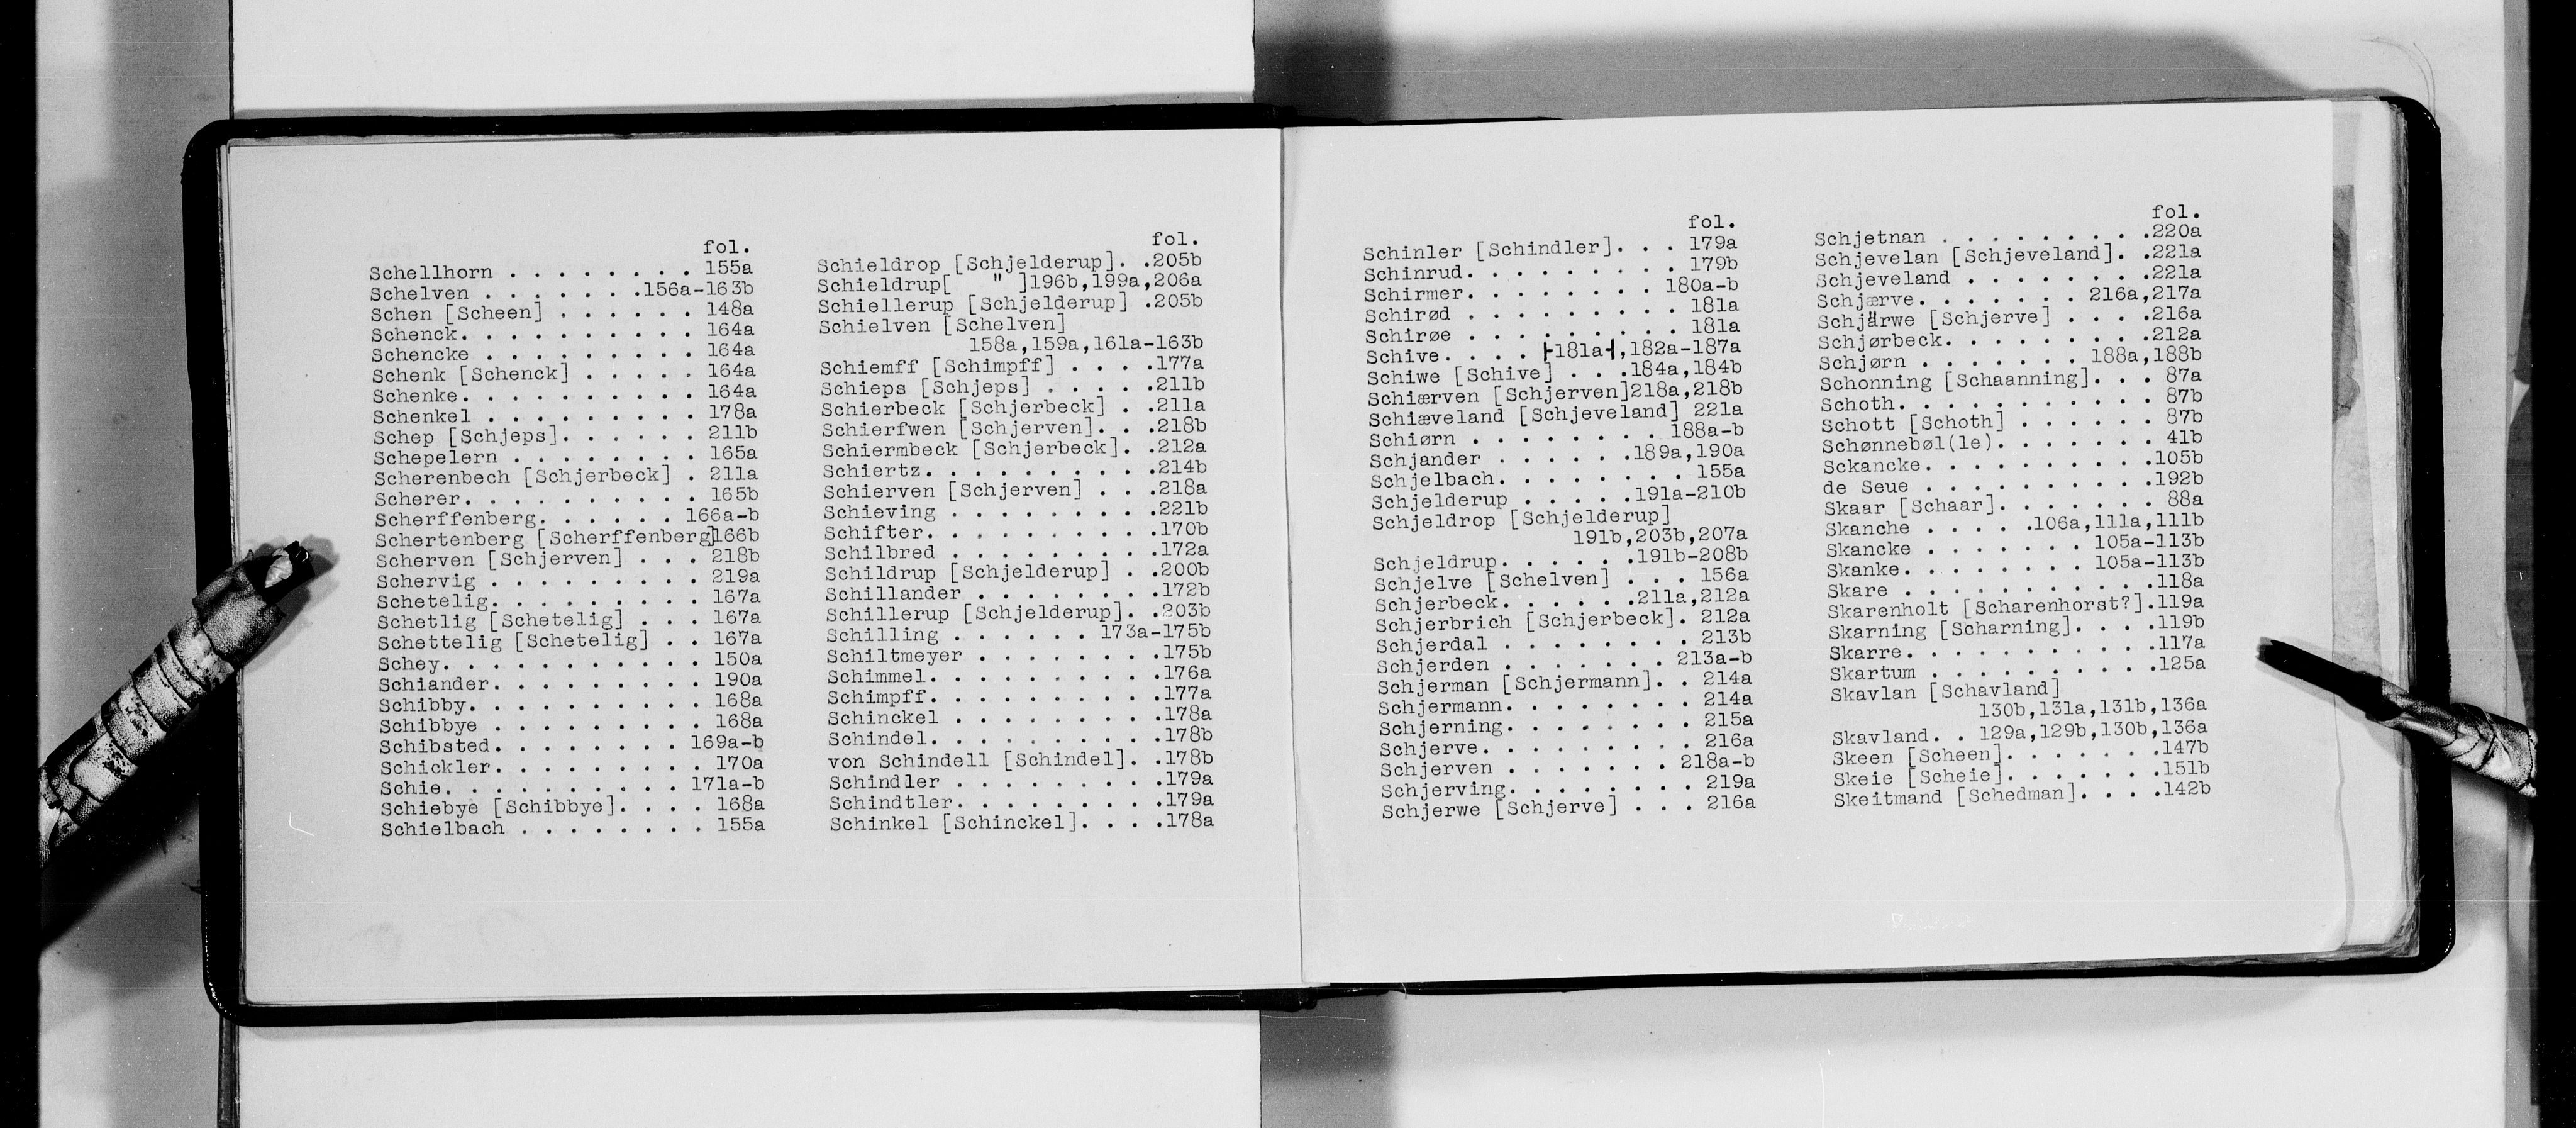 fol.
Schellhorn . . . . . . . . 155a
Schelven . . . . . . .156a-163b
Schen [Scheen] . . . . . . 148a
Schenck. . . . . . . . . . 164a
Schencke . . . . . . . . . 164a
Schenk [Schenck] . . . . . 164a
Schenke. . . . . . . . . . 164a
Schenkel . . . . . . . . . 178a
Schep [Schjeps]. . . . . . 211b
Schepelern . . . . . . . . 165a
Scherenbech [Schjerbeck] . 211a
Scherer. . . . . . . . . . 165b
Scherffenberg. . . . . . 166a-b
Schertenberg [Scherffenberg]166b
Scherven [Schjerven] . . . 218b
Schervig . . . . . . . . . 219a
Schetelig. . . . . . . . . 167a
Schetlig [Schetelig] . . . 167a
Schettelig [Schetelig] . . 167a
Schey. . . . . . . . . . . 150a
Schiander. . . . . . . . . 190a
Schibby. . . . . . . . . . 168a
Schibbye . . . . . . . . . 168a
Schibsted. . . . . . . . 169a-b
Schickler. . . . . . . . . 170a
Schie. . . . . . . . . . 171a-b
Schiebye [Schibbye]. . . . 168a
Schielbach . . . . . . . . 155a
fol.
Schieldrop [Schjelderup]. .205b
Schieldrup[ " ]196b,199a,206a
Schiellerup [Schjelderup] .205b
Schielven [Schelven]
158a,159a,161a-163b
Schiemff [Schimpff] . . . .177a
Schieps [Schjeps] . . . . .211b
Schierbeck [Schjerbeck] . .211a
Schierfwen [Schjerven]. . .218b
Schiermbeck [Schjerbeck]. .212a
Schiertz. . . . . . . . . .214b
Schierven [Schjerven] . . .218a
Schieving . . . . . . . . .221b
Schifter. . . . . . . . . .170b
Schilbred . . . . . . . . .172a
Schildrup [Schjelderup] . .200b
Schillander . . . . . . . .172b
Schillerup [Schjelderup]. .203b
Schilling . . . . . . 173a-175b
Schiltmeyer . . . . . . . .175b
Schimmel. . . . . . . . . .176a
Schimpff. . . . . . . . . .177a
Schinckel . . . . . . . . .178a
Schindel. . . . . . . . . .178b
von Schindell [Schindel]. .178b
Schindler . . . . . . . . .179a
Schindtler. . . . . . . . .179a
Schinkel [Schinckel]. . . .178a
fol.
Schinler [Schindler]. . . 179a
Schinrud. . . . . . . . . 179b
Schirmer. . . . . . . . 180a-b
Schirød . . . . . . . . . 181a
Schirøe . . . . . . . . . 181a
Schive. . . . ⊢181a⊣,182a-187a
Schiwe [Schive] . . .184a,184b
Schiærven [Schjerven]218a,218b
Schiæveland [Schjeveland] 221a
Schiørn . . . . . . . . 188a-b
Schjander . . . . . .189a,190a
Schjelbach. . . . . . . . 155a
Schjelderup . . . . .191a-210b
Schjeldrop [Schjelderup]
191b,203b,207a
Schjeldrup. . . . . .191b-208b
Schjelve [Schelven] . . . 156a
Schjerbeck. . . . . .211a,212a
Schjerbrich [Schjerbeck]. 212a
Schjerdal . . . . . . . . 213b
Schjerden . . . . . . . 213a-b
Schjerman [Schjermann]. . 214a
Schjermann. . . . . . . . 214a
Schjerning. . . . . . . . 215a
Schjerve. . . . . . . . . 216a
Schjerven . . . . . . . 218a-b
Schjerving. . . . . . . . 219a
Schjerwe [Schjerve] . . . 216a
fol.
Schjetnan . . . . . . . . .220a
Schjevelan [Schjeveland]. .221a
Schjeveland . . . . . . . .221a
Schjærve. . . . . . . 216a,217a
Schjärwe [Schjerve] . . . .216a
Schjørbeck. . . . . . . . .212a
Schjørn . . . . . . . 188a,188b
Schonning [Schaanning]. . . 87a
Schoth. . . . . . . . . . . 87b
Schott [Schoth] . . . . . . 87b
Schønnebøl(le). . . . . . . 41b
Sckancke. . . . . . . . . .105b
de Seue . . . . . . . . . .192b
Skaar [Schaar]. . . . . . . 88a
Skanche . . . . .106a,111a,111b
Skancke . . . . . . . 105a-113b
Skanke. . . . . . . . 105a-113b
Skare . . . . . . . . . . .118a
Skarenholt [Scharenhorst?].119a
Skarning [Scharning]. . . .119b
Skarre. . . . . . . . . . .117a
Skartum . . . . . . . . . .125a
Skavlan [Schavland]
130b,131a,131b,136a
Skavland. . 129a,129b,130b,136a
Skeen [Scheen]. . . . . . .147b
Skeie [Scheie]. . . . . . .151b
Skeitmand [Schedman]. . . .142b